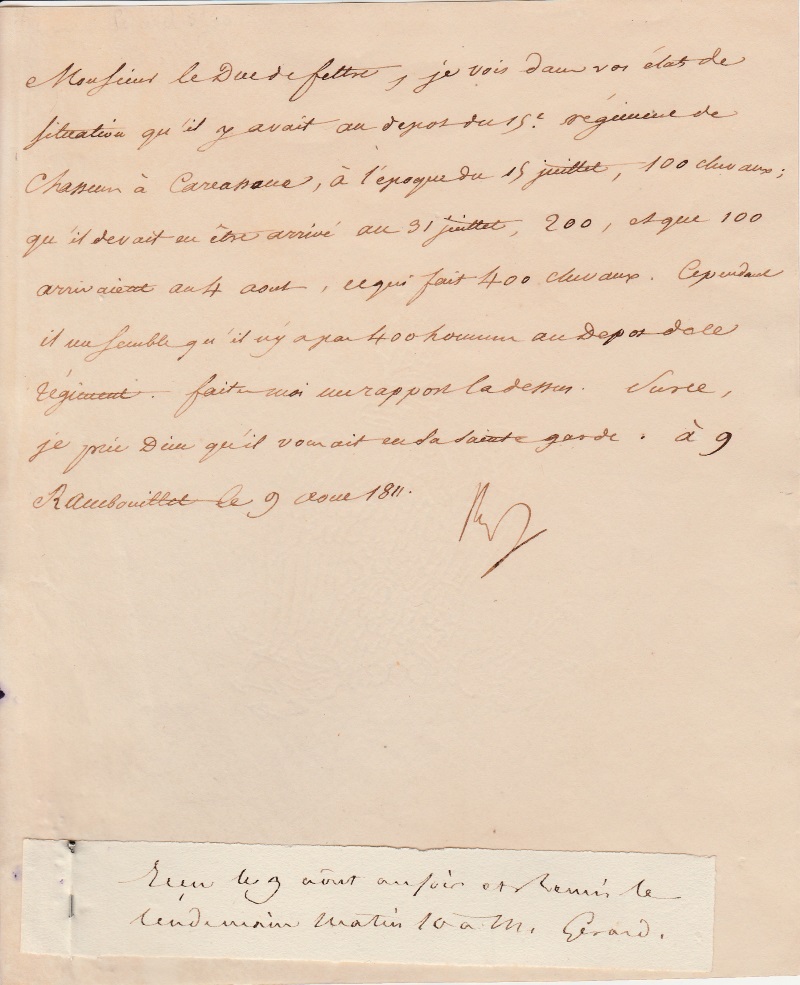 Monsieur le Duc de feltre, je vois dans vos états de
situation qu'il y avait au depot du 15e régiment de
Chasseurs à Carcassone, à l'époque du 15 juillet, 100 chevaux;
qu'il devait en être arrivé au 31 juillet, 200, et que 100
arrivaient au 4 aout, ce qui fait 400 chevaux. Cependant
il me semble qu'il n'y a pas 400 hommes au Depot de ce
régiment. faites moi un rapport la dessus. Sur ce,
je prie Dieu qu'il vous ait en sa sainte garde. à
Rambouillet le 9 aout 1811.
Recu le 9 aôut au soir et Remis le
lendemain matin 10 à M. Gérard.